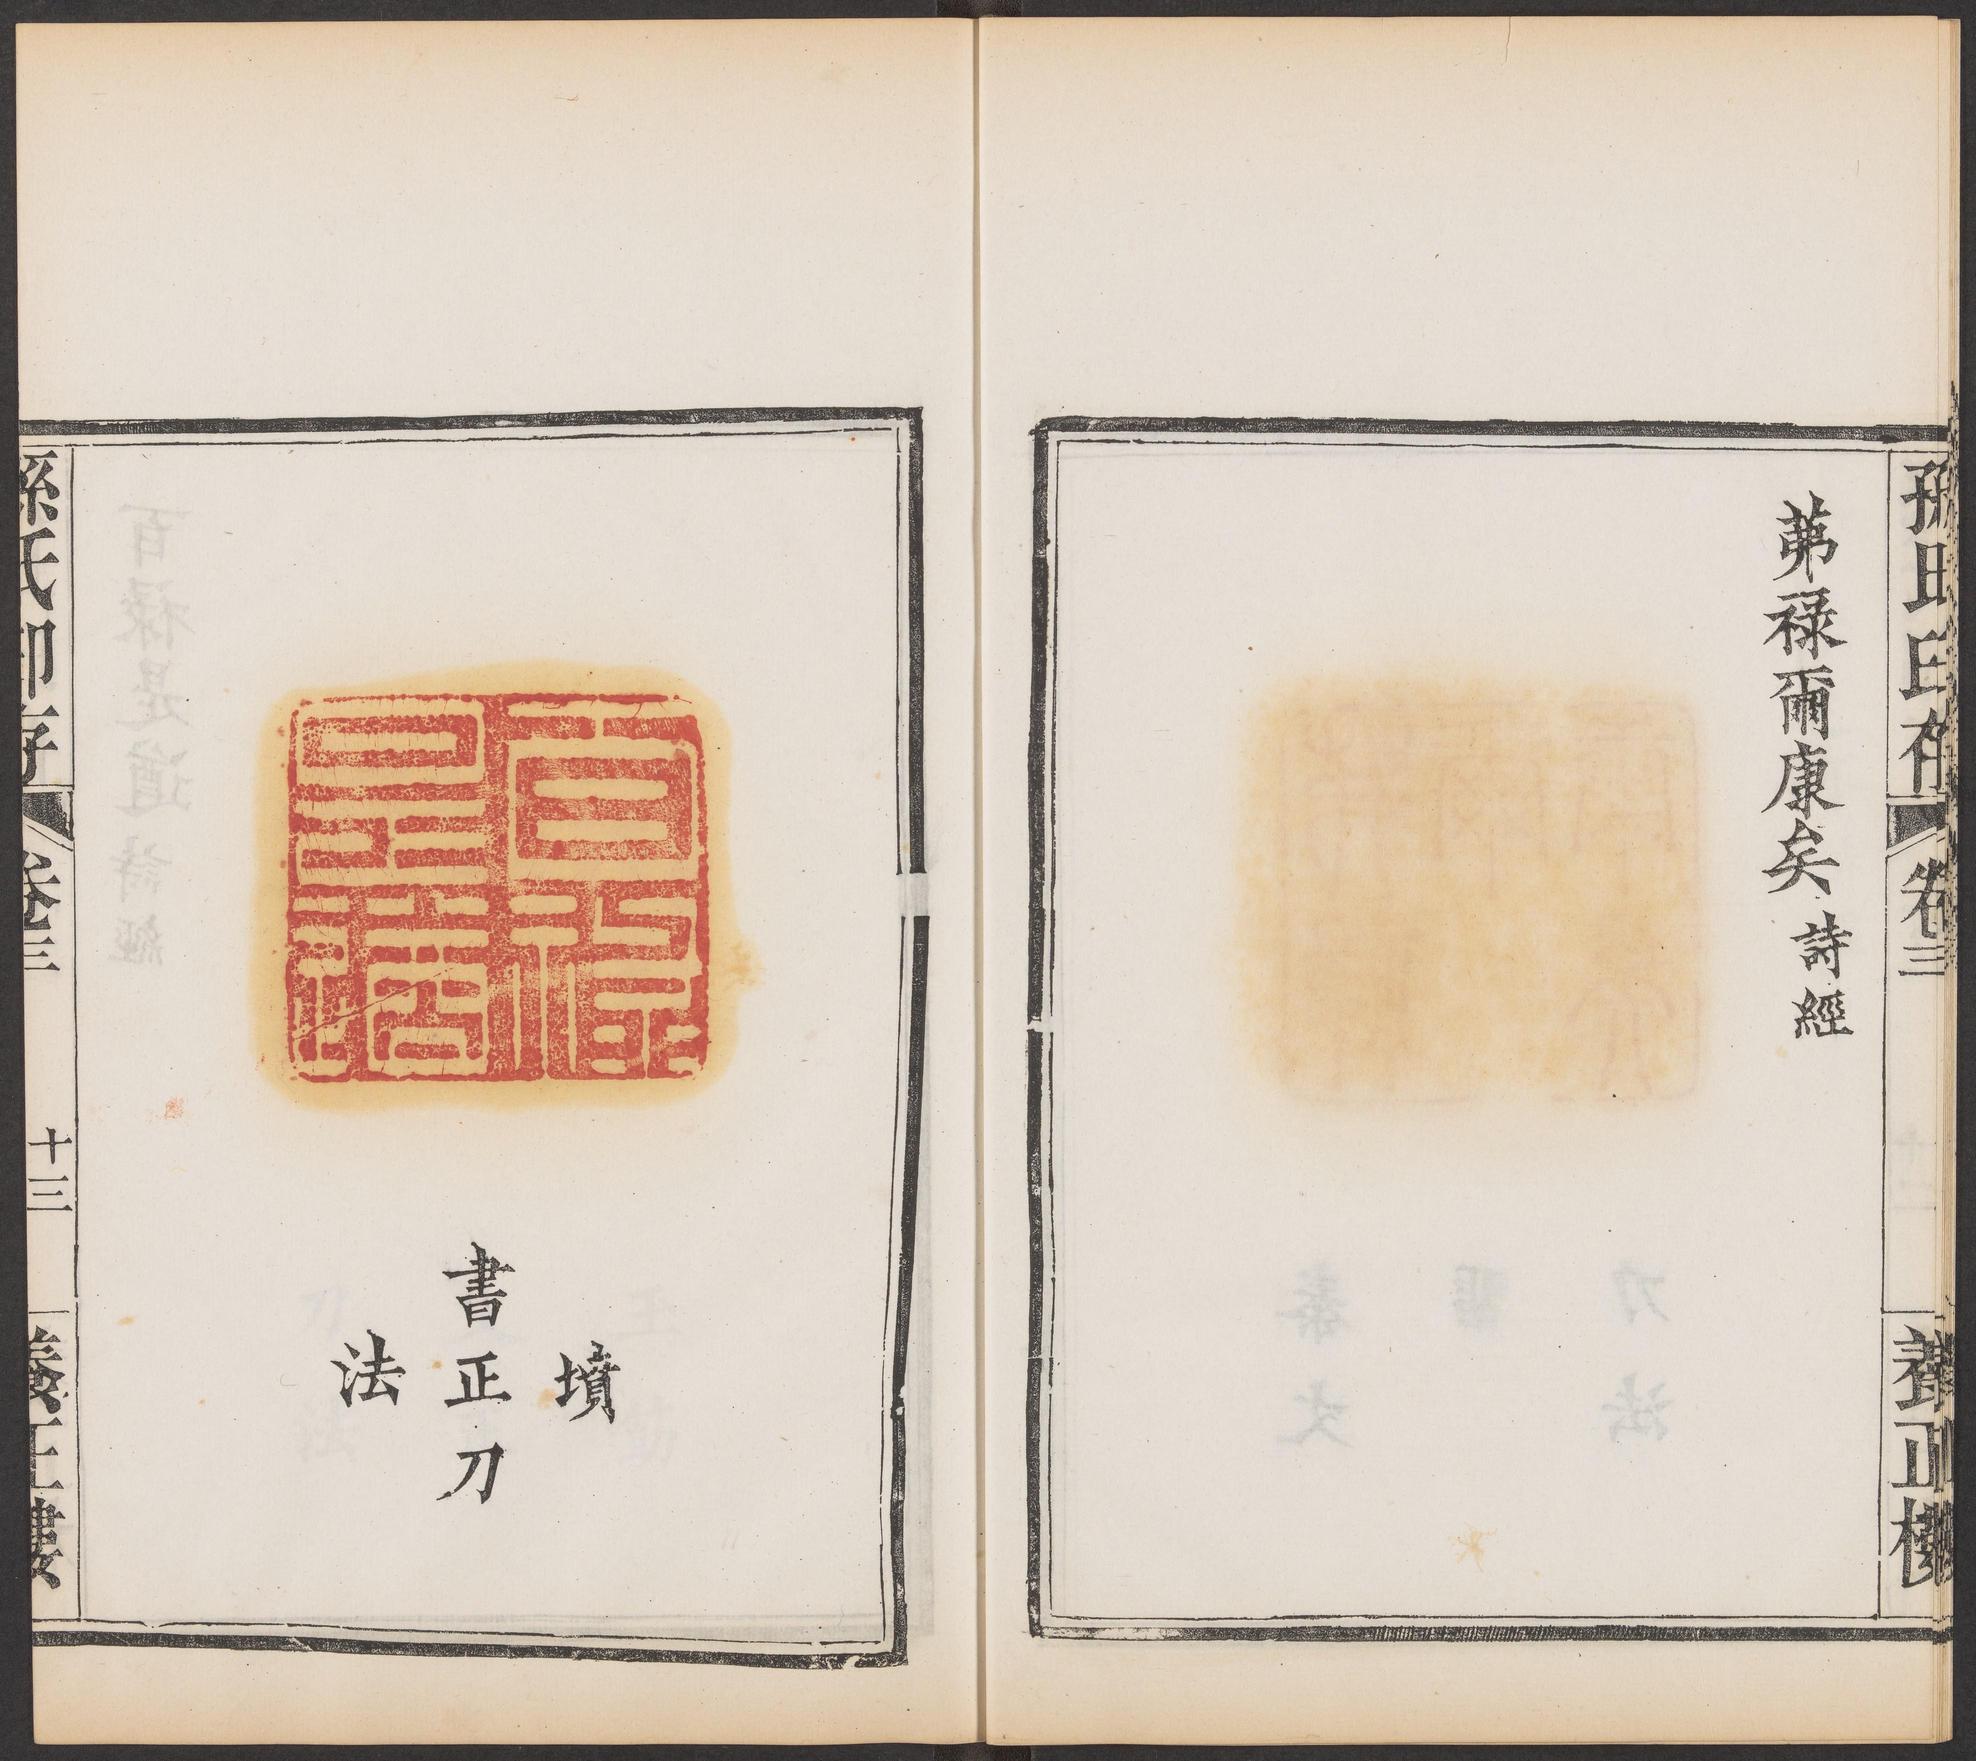 孫氏印存
卷三
養正樓
茀祿爾康矣 詩經
百祿是遒
墳
書正刀
法
孫氏印存
卷三
十三
養正樓